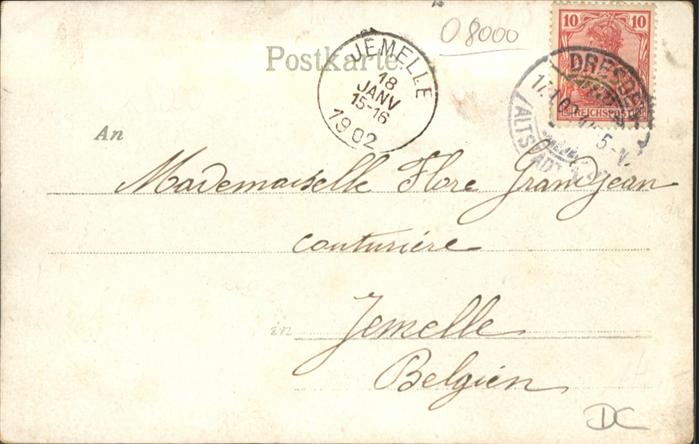 O8000
10 10
REICHSPOST
Postkarte
JEMELLE
18
JANV
15-16
1902
DRESDEN
ALTSTADT
An
Mademoiselle Flore Grandjean
couturière
in Jemelle
Belgien
DC